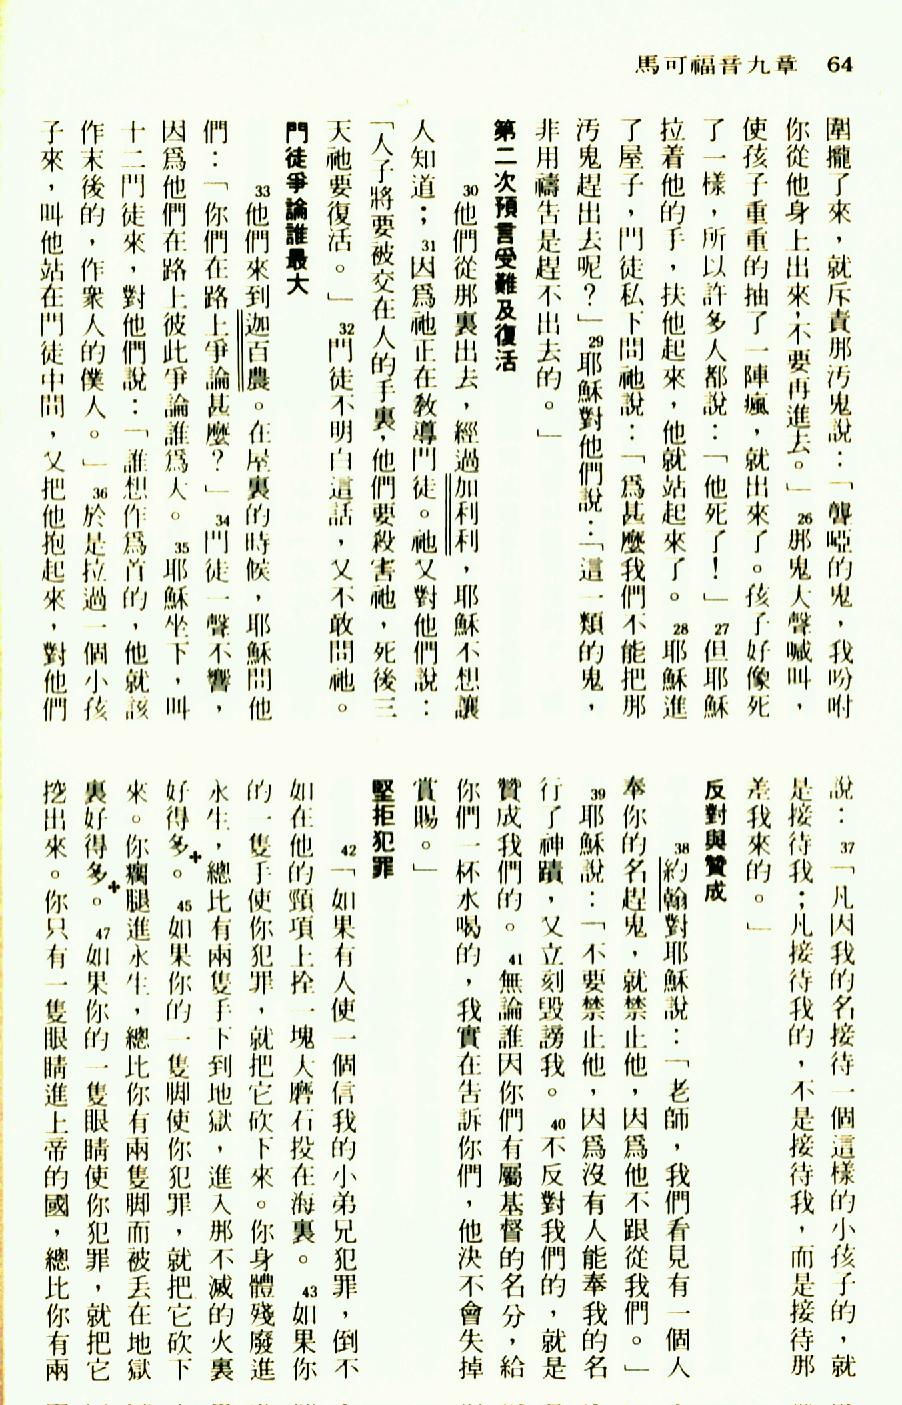 馬可福音九章 64
圍攏了來，就斥責那汚鬼說：「聾啞的鬼，我吩咐
你從他身上出來，不要再進去。」26那鬼大聲喊叫，
使孩子重重的抽了一陣瘋，就出來了。孩子好像死
了一樣，所以許多人都說：「他死了！」27但耶穌
拉着他的手，扶他起來，他就站起來了。28耶穌進
了屋子，門徒私下問祂說：「爲甚麼我們不能把那
汚鬼趕出去呢？」29耶穌對他們說：「這一類的鬼，
非用禱告是趕不出去的。」
第二次預言受難及復活
30他們從那裏出去，經過加利利，耶穌不想讓
人知道；31因爲祂正在敎導門徒。祂又對他們說：
「人子將要被交在人的手裏，他們要殺害祂，死後三
天祂要復活。」32門徒不明白這話，又不敢問祂。
門徒爭論誰最大
33他們來到迦百農。在屋裏的時候，耶穌問他
們：「你們在路上爭論甚麼？」34門徒一聲不響，
因爲他們在路上彼此爭論誰爲大。35耶穌坐下，叫
十二門徒來，對他們說：「誰想作爲首的，他就該
作末後的，作衆人的僕人。」36於是拉過一個小孩
子來，叫他站在門徒中間，又把他抱起來，對他們
說：37「凡因我的名接待一個這樣的小孩子的，就
是接待我；凡接待我的，不是接待我，而是接待那
差我來的。」
反對與贊成
38約翰對耶穌說：「老師，我們看見有一個人
奉你的名趕鬼，就禁止他，因爲他不跟從我們。」
39耶穌說：「不要禁止他，因爲沒有人能奉我的名
行了神蹟，又立刻毀謗我。40不反對我們的，就是
贊成我們的。41無論誰因你們有屬基督的名分，給
你們一杯水喝的，我實在告訴你們，他決不會失掉
賞賜。」
堅拒犯罪
42「如果有人使一個信我的小弟兄犯罪，倒不
如在他的頸項上拴一塊大磨石投在海裏。43如果你
的一隻手使你犯罪，就把它砍下來。你身體殘廢進
永生，總比有兩隻手下到地獄，進入那不滅的火裏
好得多+。45如果你的一隻脚使你犯罪，就把它砍下
來。你瘸腿進永生，總比你有兩隻脚而被丟在地獄
裏好得多+。47如果你的一隻眼睛使你犯罪，就把它
挖出來。你只有一隻眼睛進上帝的國，總比你有兩